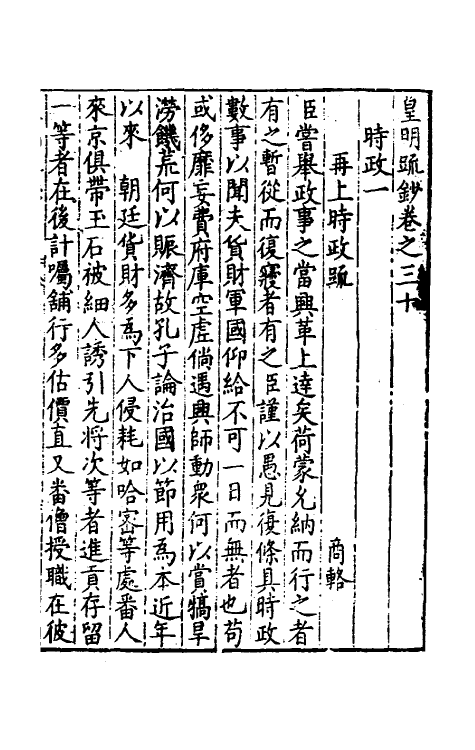 皇明疏鈔卷之三十
時政一
再上時政疏　商輅
臣嘗舉政事之當興革上達矣荷蒙允納而行之者
有之暫從而復寢者有之臣謹以愚見復條具時政
數事以聞夫貨財軍國仰給不可一日而無者也苟
或侈靡妄費府庫空虛倘遇興師動衆何以賞犒旱
澇饑荒何以賑濟故孔子論治國以節用為本近年
以來　朝廷貨財多為下人侵耗如哈密等處番人
來京俱帶玉石被細人誘引先将次等者進貢存留
一等者在後計囑舖行多估價直又畨僧授職在彼